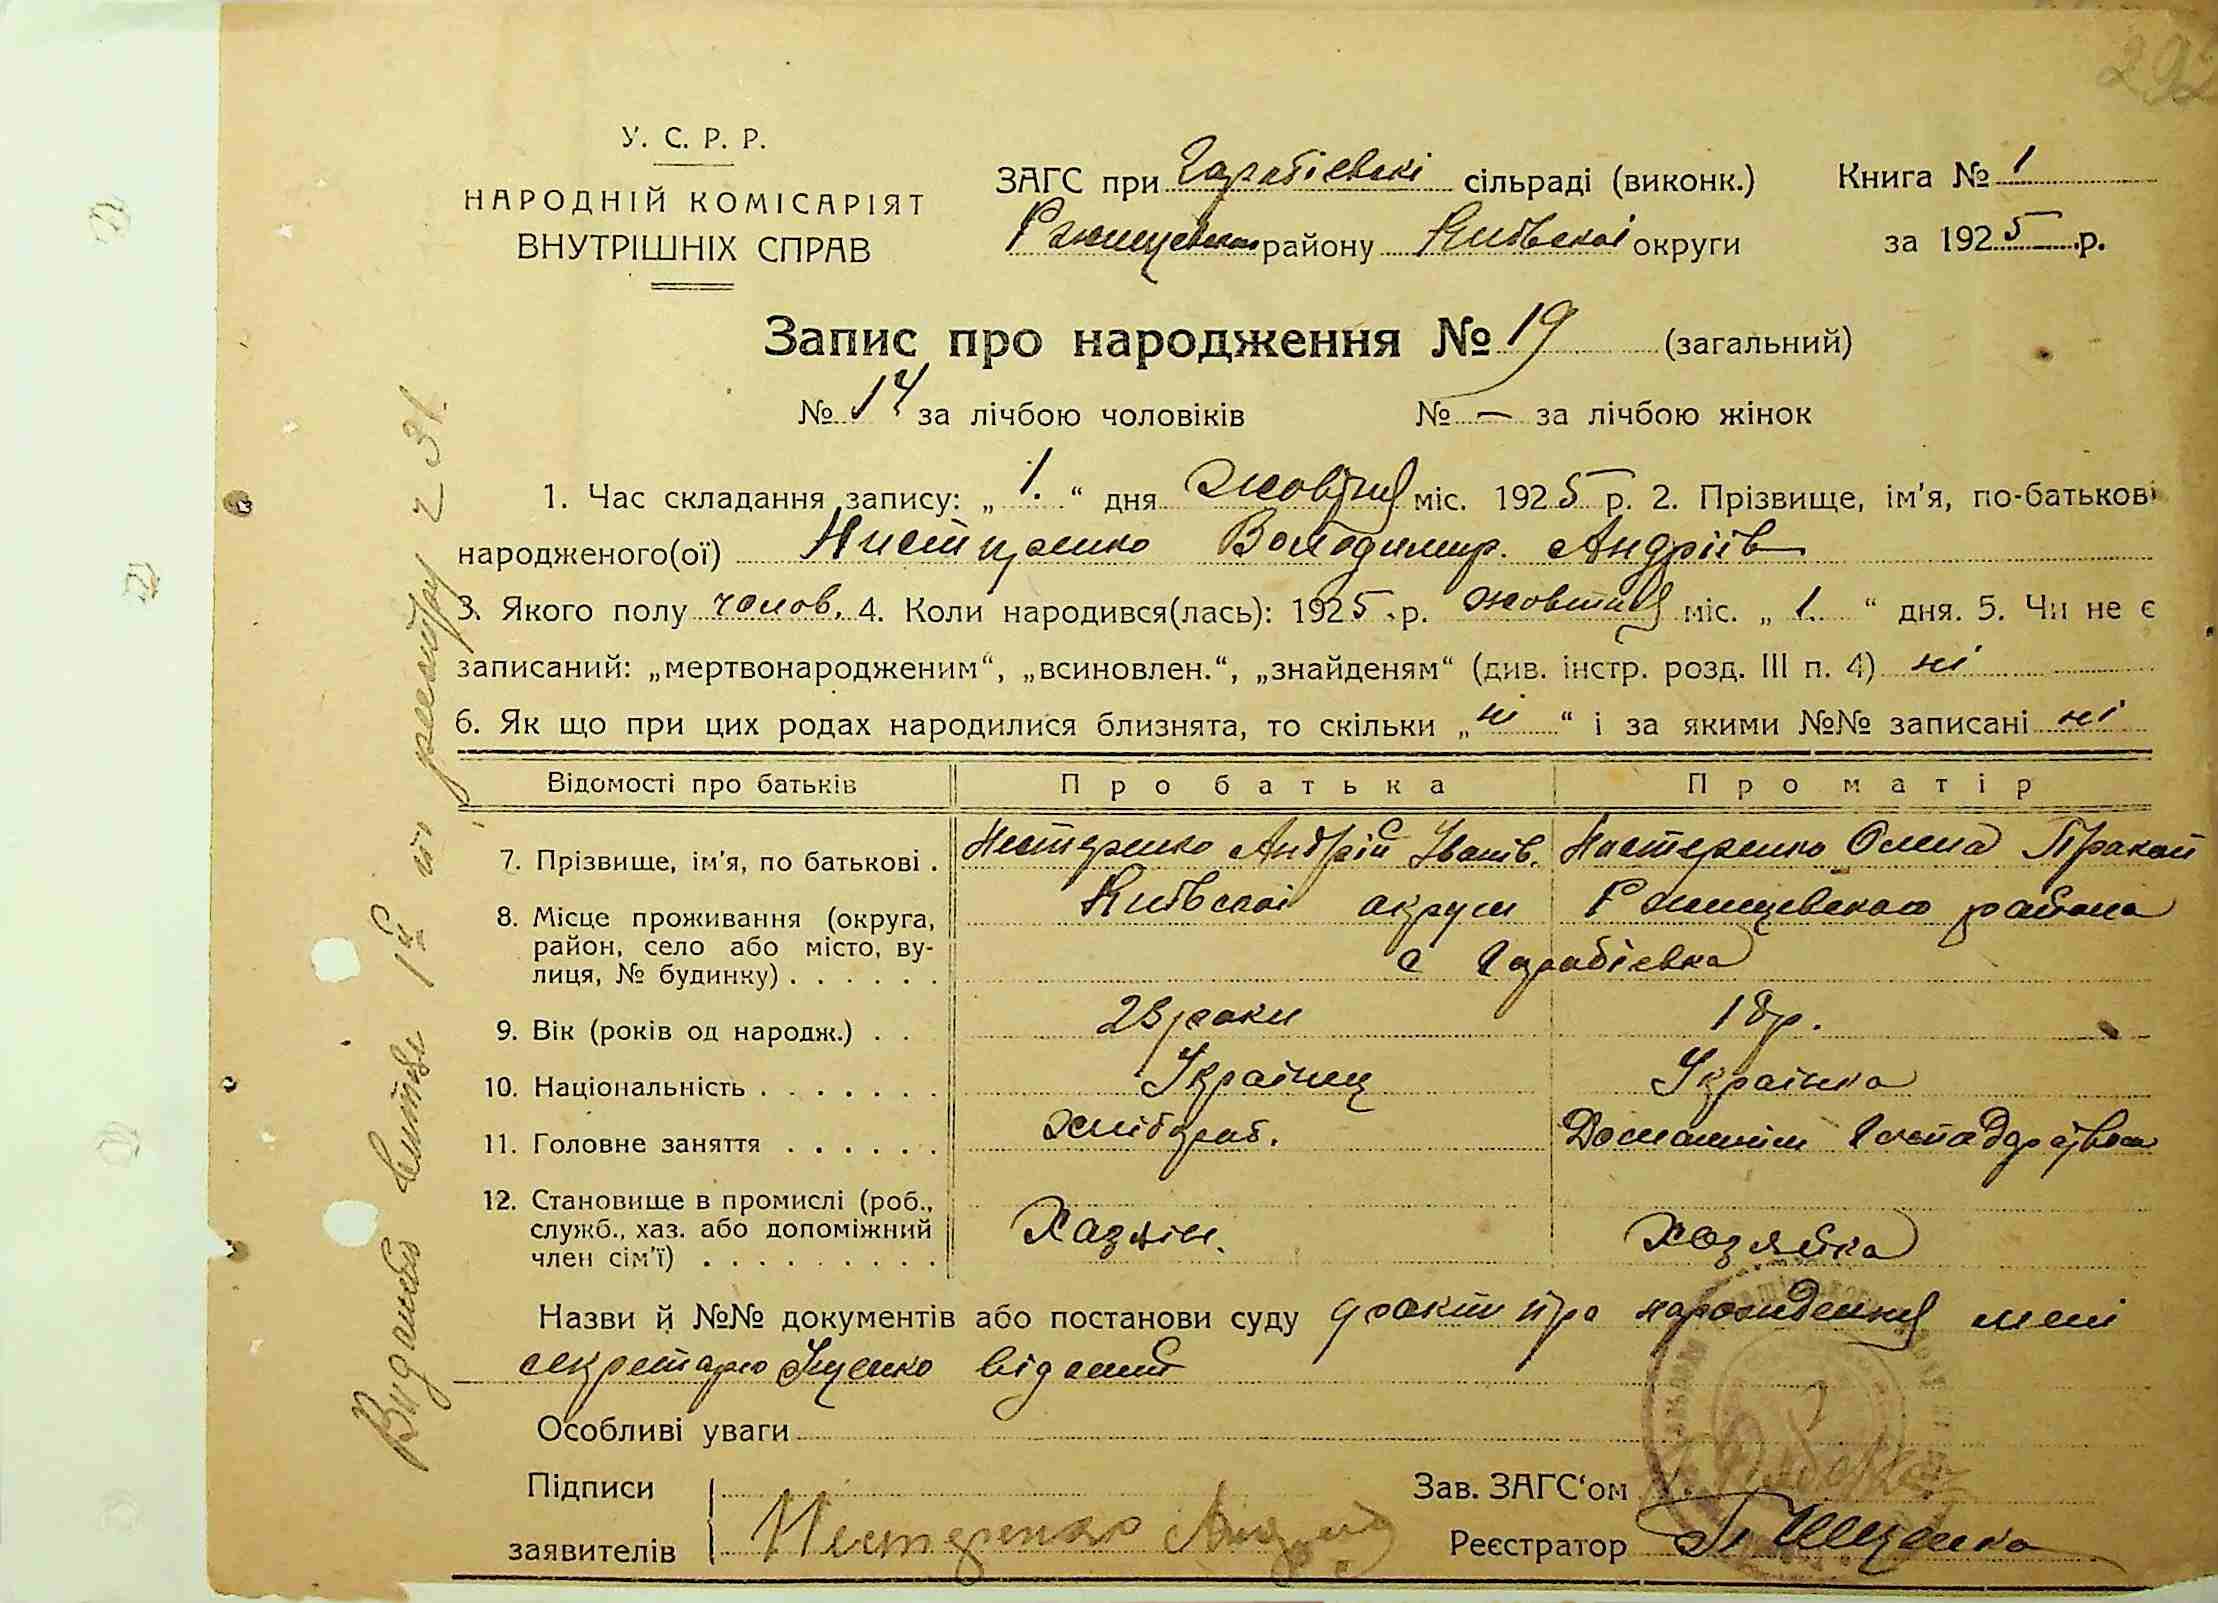 292
У. С. Р. Р.
НАРОДНІЙ КОМІСАРІЯТ
ВНУТРІШНІХ СПРАВ
ЗАГС при сільраді (виконк.) Книга № 1
району Київскої округи за 1925 р.
Запис про народження № 19 (загальний)
№ 14 за лічбою чоловіків № — за лічбою жінок
1. Час складання запису: „ 1. “ дня міс. 1925 р. 2. Прізвище, ім'я, по-батькові
народженого(ої) Володимир. Андріїв
3. Якого полу чолов. 4. Коли народився(лась): 1925 р. жовтня міс. „ 1. “ дня. 5. Чи не є
записаний: „мертвонародженим“, „всиновлен.“, „знайденям“ (див. інстр. розд. III п. 4) ні
6. Як що при цих родах народилися близнята, то скільки „ ні “ і за якими №№ записані ні
Відомості про батьків Про батька Про матір
7. Прізвище, ім'я, по батькові . Нестеренко Андрій Іванів. Нестеренко Олена
8. Місце проживання (округа, Київскої округи района
район, село або місто, ву- с
лиця, № будинку) . . . . . .
9. Вік (років од народж.) . . 23 роки 18 р.
10. Національність . . . . . . . Українец Українка
11. Головне заняття . . . . . . хлібороб. Домашнім
12. Становище в промислі (роб., Хазяїн. Хозяйка
служб., хаз. або допоміжний
член сім'ї) . . . . . . . . .
Назви й №№ документів або постанови суду факт про народження мені
секретарю Іщенко відомий
Особливі уваги
Підписи Зав. ЗАГС‘ом
заявителів Нестеренко Андрій Реєстратор Іщенко
Видано 1й по реєстру 231.